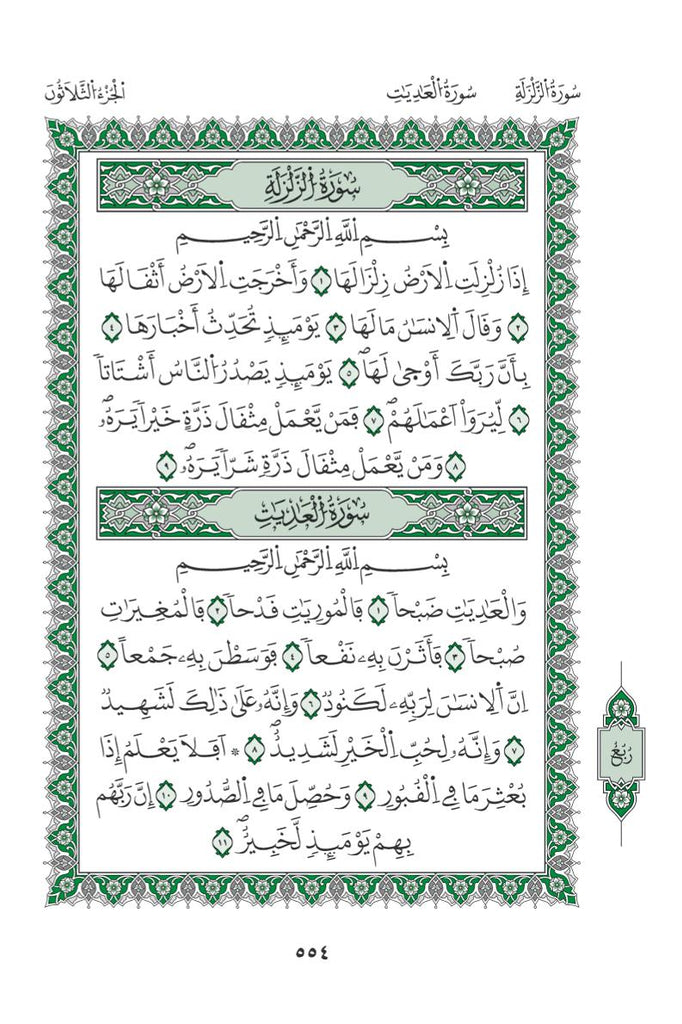 سُورَةُ الزَّلْزَلَةِ سُورَةُ الْعَادِيَاتِ الْجُزْءُ الثَّلَاثُونَ
سُورَةُ الزَّلْزَلَةِ
بِسْمِ اللَّهِ الرَّحْمَٰنِ الرَّحِيمِ
إِذَا زُلْزِلَتِ اِلَارْضُ زِلْزَالَهَا ١ وَأَخْرَجَتِ اِلَارْضُ أَثْقَالَهَا
٢ وَقَالَ اَلِانسَٰنُ مَا لَهَا ٣ يَوْمَئِذٖ تُحَدِّثُ أَخْبَارَهَا ٤
بِأَنَّ رَبَّكَ أَوْح۪ىٰ لَهَا ٥ يَوْمَئِذٖ يَصْدُرُ اُلنَّاسُ أَشْتَاتاٗ
٦ لِّيُرَوَاْ اَعْمَٰلَهُمْ ٧ فَمَنْ يَّعْمَلْ مِثْقَالَ ذَرَّةٍ خَيْراٗ يَرَهُۥ
٨ وَمَنْ يَّعْمَلْ مِثْقَالَ ذَرَّةٖ شَرّاٗ يَرَهُۥ ٩
سُورَةُ الْعَٰدِيَٰتِ
بِسْمِ اللَّهِ الرَّحْمَٰنِ الرَّحِيمِ
وَالْعَٰدِيَٰتِ ضَبْحاٗ ١ فَالْمُورِيَٰتِ قَدْحاٗ ٢ فَالْمُغِيرَٰتِ
صُبْحاٗ ٣ فَأَثَرْنَ بِهِۦ نَقْعاٗ ٤ فَوَسَطْنَ بِهِۦ جَمْعاً ٥
اِنَّ اَلِانسَٰنَ لِرَبِّهِۦ لَكَنُودٞ ٦ وَإِنَّهُۥ عَلَىٰ ذَٰلِكَ لَشَهِيدٞ
٧ وَإِنَّهُۥ لِحُبِّ اِلْخَيْرِ لَشَدِيدٌ ٨ * اَفَلَا يَعْلَمُ إِذَا
بُعْثِرَ مَا فِے اِلْقُبُورِ ٩ وَحُصِّلَ مَا فِے اِلصُّدُورِ ١٠ إِنَّ رَبَّهُم
بِهِمْ يَوْمَئِذٖ لَّخَبِيرٌ ١١
رُبُعُ
٥٥٤